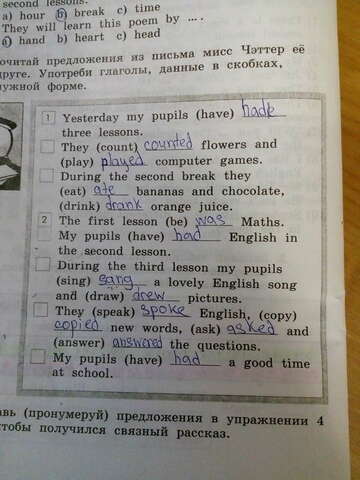 second lessons.
a) hour b) break c) time
They will learn this poem by ... .
a) hand b) heart c) head
очитай предложения из письма мисс Чэттер её
друге. Употреби глаголы, данные в скобках,
нужной форме.
1 Yesterday my pupils (have) hade
three lessons.
They (count) counted flowers and
(play) played computer games.
During the second break they
(eat) ate bananas and chocolate,
(drink) drank orange juice.
2 The first lesson (be) was Maths.
My pupils (have) had English in
the second lesson.
During the third lesson my pupils
(sing) sang a lovely English song
and (draw) drew pictures.
They (speak) spoke English, (copy)
copied new words, (ask) asked and
(answer) answered the questions.
My pupils (have) had a good time
at school.
авь (пронумеруй) предложения в упражнении 4
чтобы получился связный рассказ.